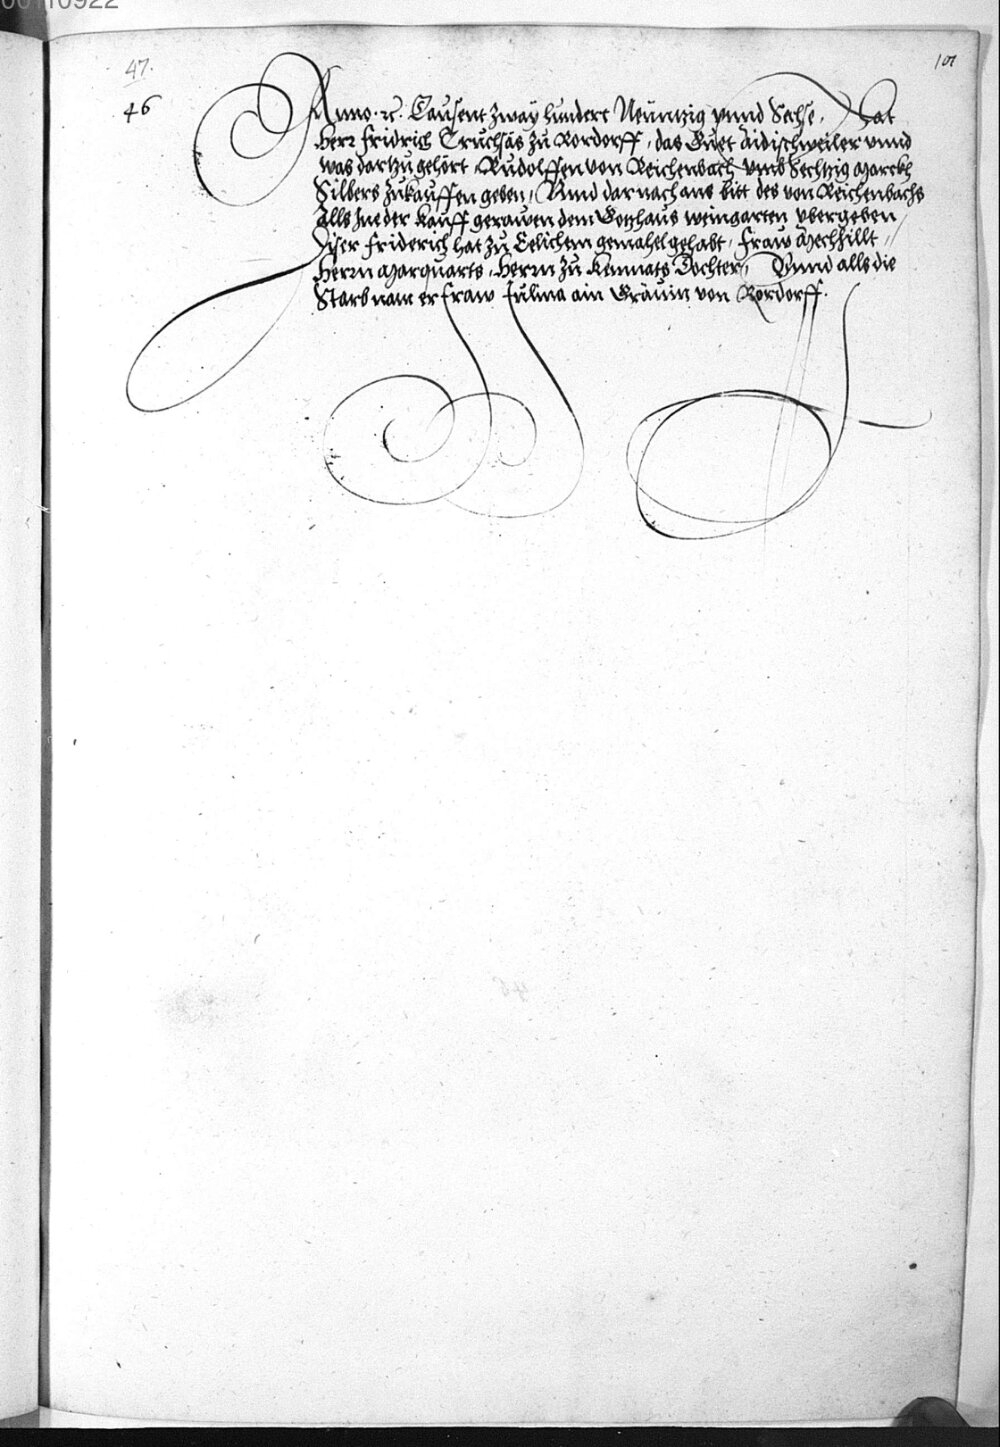 00110922
47.
101
46
Anno. ꝛc. Tausent zway hundert Neüntzig vnnd Sechse, Hat
Herr Fridrich Truchsäs zu Rordorff, das Guet Aidischweiler vnnd
was dartzu gehört Rudolffen von Reichenbach vmb Sechtzig Marckh
Silbers zukauffen geben, Vnnd darnach aus bitt des von Reichenbachs
Alls Jne der Kauff gerawen dem Gotzhaus weingarten vbergeben,
Diser Friderich hat zu Eelichem gemahel gehabt, Fraw Mechtillt,
Herrn Marquarts, Herrn zu Kemnats Dochter, Vnnd alls die
Starb nam er Fraw Julina ain Gräuin von Rordorff.